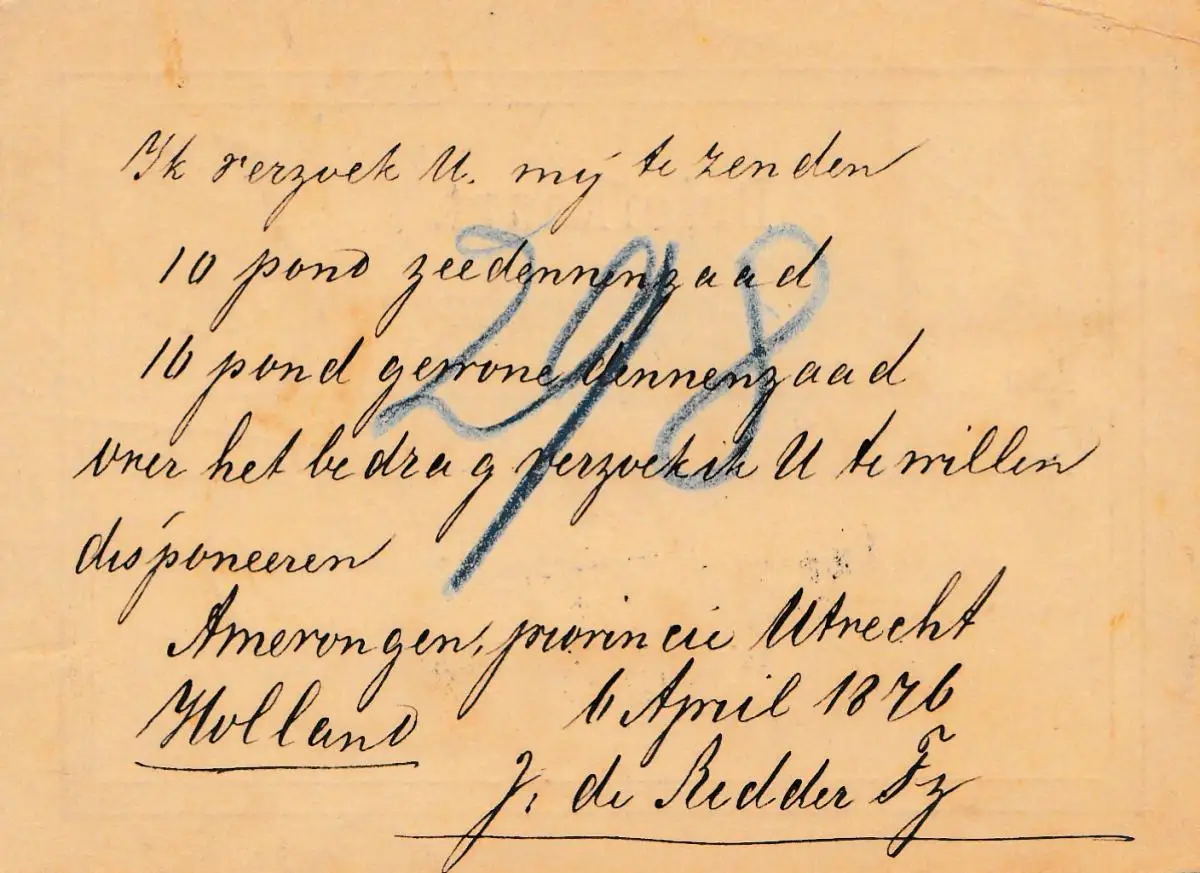 Ik verzoek U. mij te zenden
10 pond zeedennenzaad
16 pond gewone dennenzaad
over het bedrag verzoek ik U te willen
disponeeren
Amerongen, provincie Utrecht
Holland 6 April 1876
J. de Ridder Fz
298